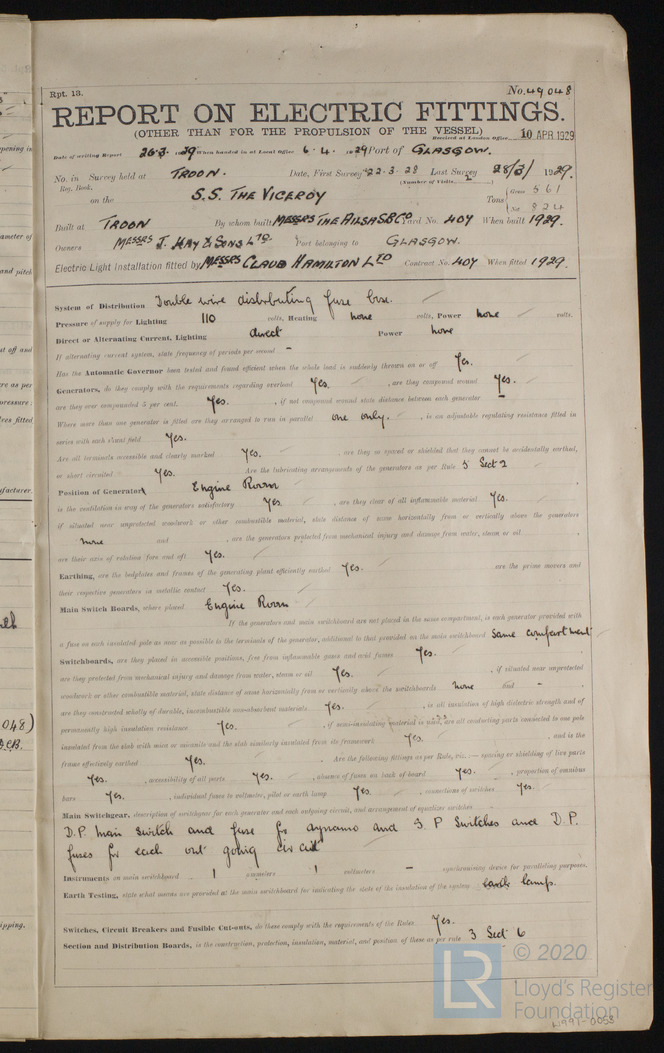 Rpt. 13.
No. 49048
REPORT ON ELECTRIC FITTINGS.
(OTHER THAN FOR THE PROPULSION OF THE VESSEL)
Received at London Office 10 APR. 1929
Date of writing Report 26.3. 1929 When handed in at Local Office 6.4. 1929 Port of GLASGOW.
No. in Survey held at TROON. Date, First Survey 22.3.28 Last Survey 28/3/ 1929.
Reg. Book. (Number of Visits 2)
on the S.S. THE VICEROY Tons { Gross 561
Net 224
Built at TROON By whom built MESSRS THE AILSA S B CO Yard No. 407 When built 1929.
Owners MESSRS J. HAY & SONS LTD. Port belonging to GLASGOW.
Electric Light Installation fitted by MESSRS CLAUD HAMILTON LTD Contract No. 407 When fitted 1929.
System of Distribution Double wire distributing fuse box.
Pressure of supply for Lighting 110 volts, Heating none volts, Power none volts.
Direct or Alternating Current, Lighting direct Power none
If alternating current system, state frequency of periods per second -
Has the Automatic Governor been tested and found efficient when the whole load is suddenly thrown on or off Yes.
Generators, do they comply with the requirements regarding overload Yes. , are they compound wound Yes.
are they over compounded 5 per cent. Yes. , if not compound wound state distance between each generator -
Where more than one generator is fitted are they arranged to run in parallel one only. , is an adjustable regulating resistance fitted in
series with each shunt field Yes.
Are all terminals accessible and clearly marked Yes. , are they so spaced or shielded that they cannot be accidentally earthed,
or short circuited Yes. Are the lubricating arrangements of the generators as per Rule 3 Sect 2
Position of Generators Engine Room
is the ventilation in way of the generators satisfactory Yes , are they clear of all inflammable material Yes.
if situated near unprotected woodwork or other combustible material, state distance of same horizontally from or vertically above the generators
none and , are the generators protected from mechanical injury and damage from water, steam or oil
are their axis of rotation fore and aft Yes.
Earthing, are the bedplates and frames of the generating plant efficiently earthed Yes. are the prime movers and
their respective generators in metallic contact Yes.
Main Switch Boards, where placed Engine Room
If the generators and main switchboard are not placed in the same compartment, is each generator provided with
a fuse on each insulated pole as near as possible to the terminals of the generator, additional to that provided on the main switchboard same compartment
Switchboards, are they placed in accessible positions, free from inflammable gases and acid fumes Yes.
are they protected from mechanical injury and damage from water, steam or oil Yes. , if situated near unprotected
woodwork or other combustible material, state distance of same horizontally from or vertically above the switchboards none and -
are they constructed wholly of durable, incombustible non-absorbent materials Yes. , is all insulation of high dielectric strength and of
permanently high insulation resistance Yes. , if semi-insulating material is used, are all conducting parts connected to one pole
insulated from the slab with mica or micanite and the slab similarly insulated from its framework Yes. , and is the
frame effectively earthed Yes. Are the following fittings as per Rule, viz.:— spacing or shielding of live parts
Yes. , accessibility of all parts Yes. , absence of fuses on back of board Yes. , proportion of omnibus
bars Yes. , individual fuses to voltmeter, pilot or earth lamp Yes. , connections of switches Yes.
Main Switchgear, description of switchgear for each generator and each outgoing circuit, and arrangement of equalizer switches
D.P. Main Switch and fuse for dynamo and S.P Switches and D.P.
fuses for each out going circuit
Instruments on main switchboard 1 ammeters 1 voltmeters - synchronising device for paralleling purposes.
Earth Testing, state what means are provided at the main switchboard for indicating the state of the insulation of the system earth lamps.
Switches, Circuit Breakers and Fusible Cut-outs, do these comply with the requirements of the Rules Yes.
Section and Distribution Boards, is the construction, protection, insulation, material, and position of these as per rule 3 Sect 6
LR
© 2020
Lloyd's Register
Foundation
W991-0058